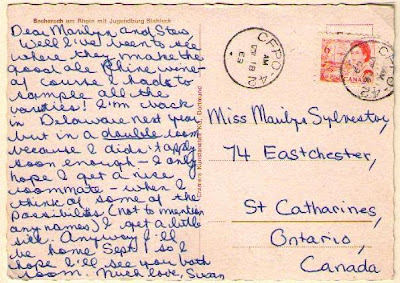 Bacharach am Rhein mit Jugendburg Stahleck
Dear Marilyn and Stew,
Well I've been to see
where they make the
good ole Rhine wine -
of course I had to
sample all the
varieties! I'm back
in Delaware next year
but in a double room
because I didn't apply
soon enough - I only
hope I get a nice
roommate - when I
think of some of the
possibilities (not to mention
any names) I get a little
sick. Anyway I'll
be home Sept 1 so I
hope I'll see you both
soon. Much love, Susan
Cramers Kunstanstalt KG, Dortmund
CFPO-42
AM
18
69
6
CANADA
CFPO-42
Miss Marilyn Sylvestor,
74 Eastchester,
St Catharines,
Ontario,
Canada